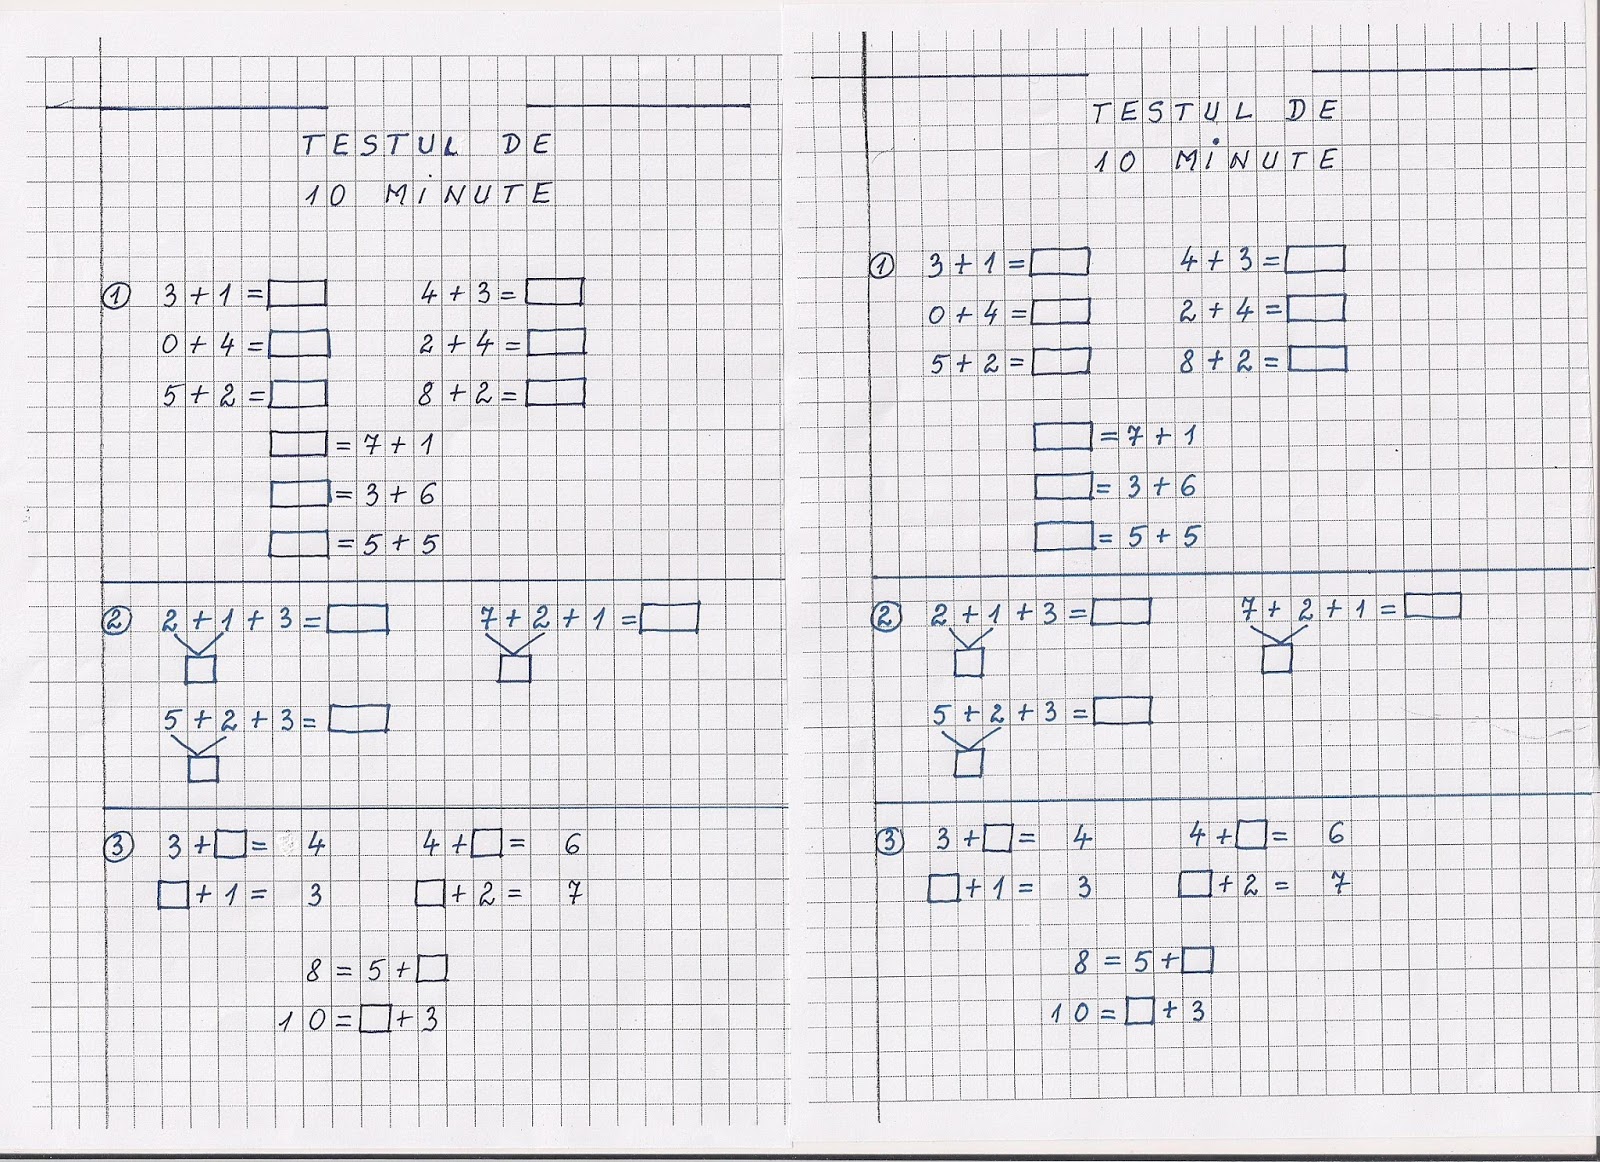 TESTUL DE
10 MiNUTE
① 3 + 1 = 4 + 3 =
0 + 4 = 2 + 4 =
5 + 2 = 8 + 2 =
= 7 + 1
= 3 + 6
= 5 + 5
② 2 + 1 + 3 = 7 + 2 + 1 =
5 + 2 + 3 =
③ 3 + = 4 4 + = 6
+ 1 = 3 + 2 = 7
8 = 5 +
10 = + 3
TESTUL DE
10 MiNUTE
① 3 + 1 = 4 + 3 =
0 + 4 = 2 + 4 =
5 + 2 = 8 + 2 =
= 7 + 1
= 3 + 6
= 5 + 5
② 2 + 1 + 3 = 7 + 2 + 1 =
5 + 2 + 3 =
③ 3 + = 4 4 + = 6
+ 1 = 3 + 2 = 7
8 = 5 +
10 = + 3